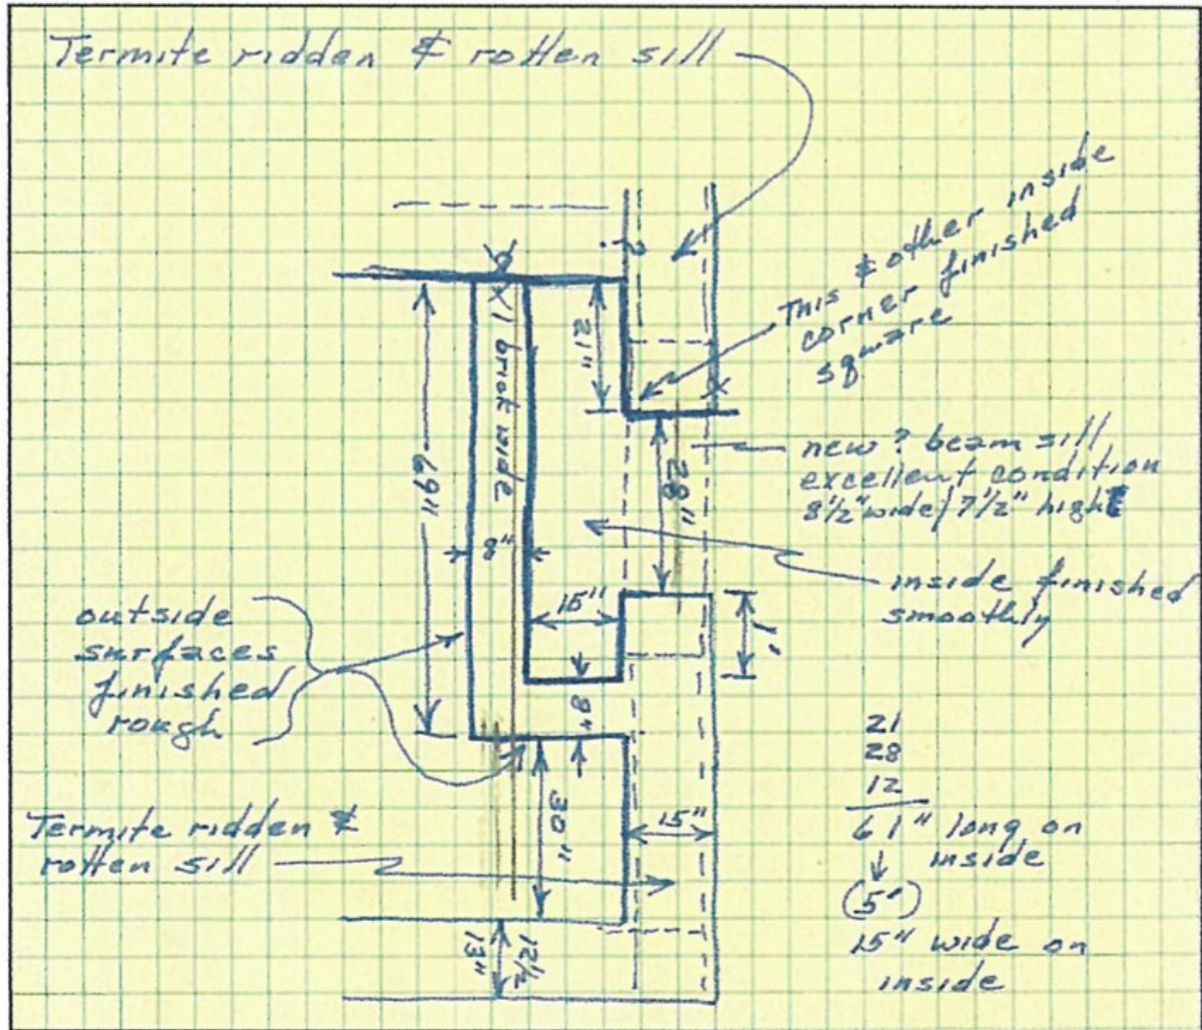 Termite ridden & rotten sill
?
This & other inside
corner finished
square
21"
1 brick wide
69"
28"
8"
new ? beam sill
excellent condition
8½" wide/7½" high
inside finished
smoothly
15"
1'
outside
surfaces
finished
rough
8"
30"
15"
Termite ridden &
rotten sill
12½
13"
21
28
12
61" long on
inside
(5')
15" wide on
inside